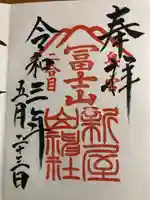 奉拝
冨士山
二合目
新屋
山神社
令和三年
五月二十三日